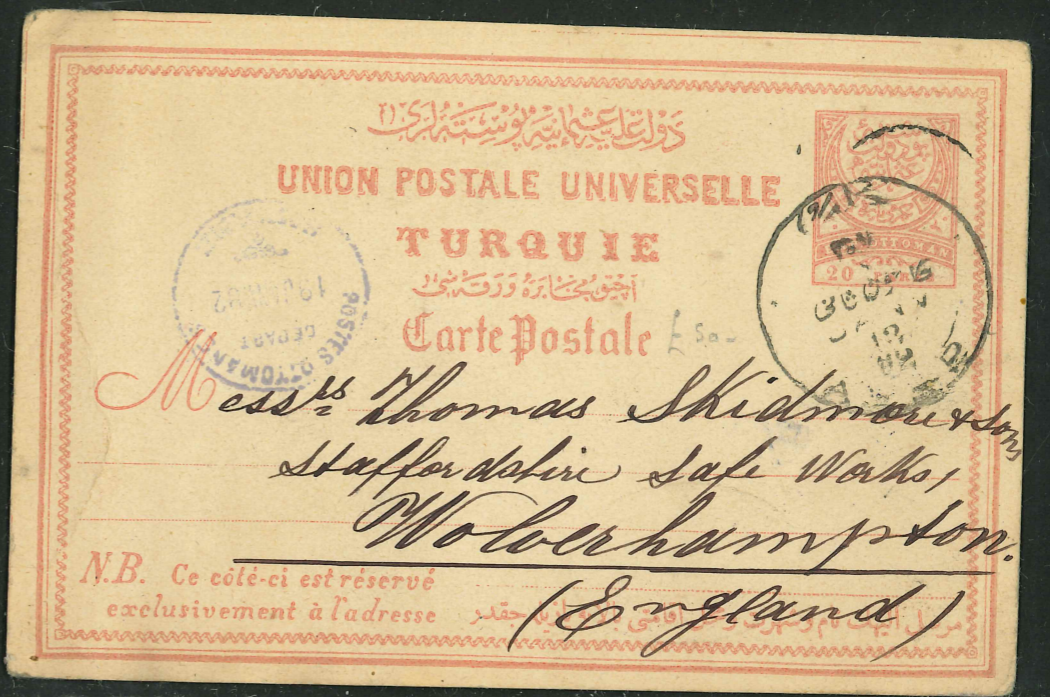 دولت علیه عثمانیه پوسته لری
UNION POSTALE UNIVERSELLE
TURQUIE
آچیق مخابره ورقه سی
Carte Postale
£ 50-
20
POSTES OTTOMANES
DEPART
Messrs Thomas Skidmore & Sons
Staffordshire Safe Works,
Wolverhampton.
(England)
N.B. Ce côté-ci est réservé
exclusivement à l'adresse